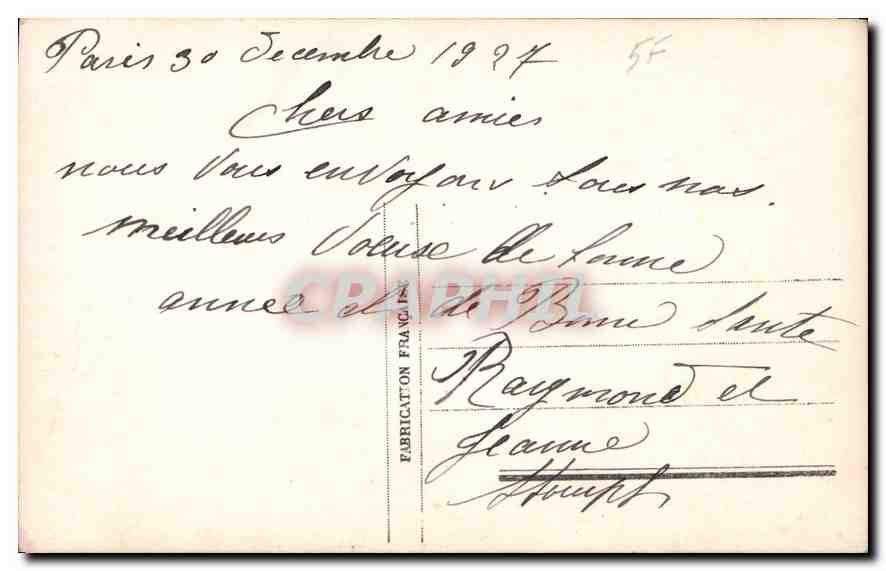 Paris 30 decembre 1927
5F
Chers amies
nous vous envoyons tous nos
meilleurs voeuse de bonne
annee et de Bonne Sante
Raymond et
Jeanne
FABRICATION FRANÇAISE
CPAPHIL